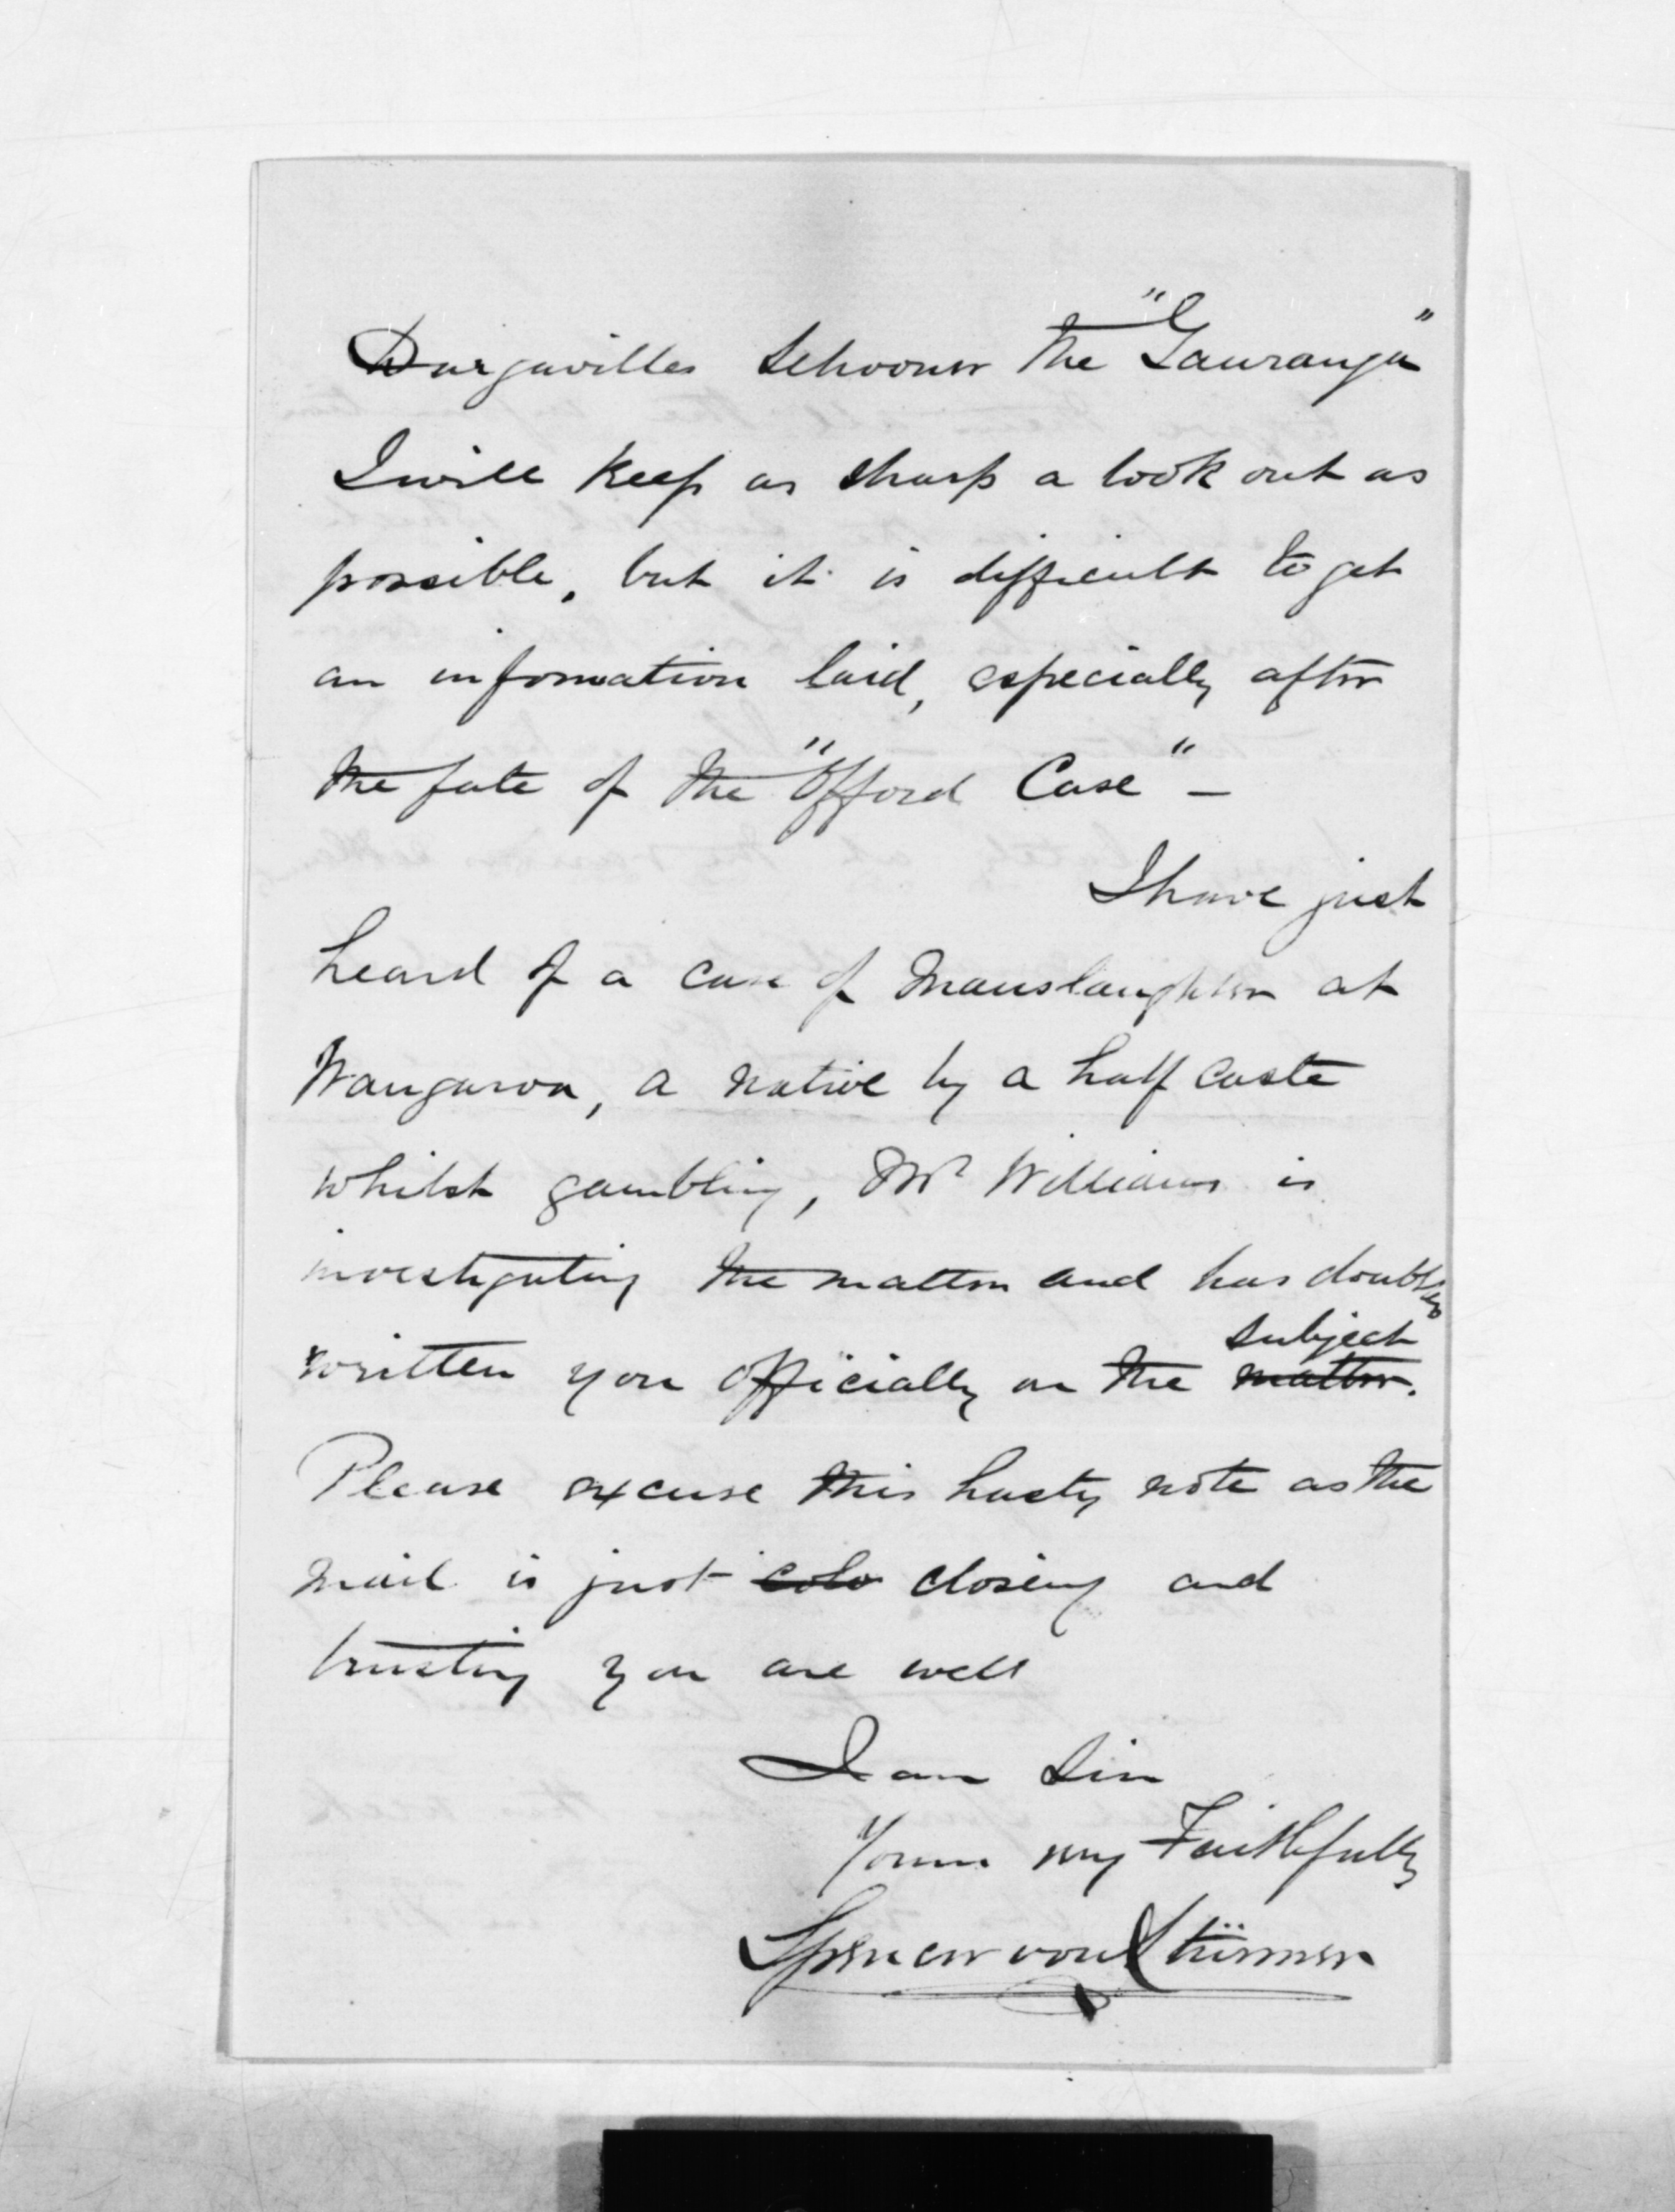 Dargavilles Schooner the "Tauranga"
I will keep as sharp a look out as
possible, but it is difficult to get
an information laid, especially after
the fate of the "Offord Case" –
I have just
heard of a case of Manslaughter at
Wangaroa, a native by a half caste
whilst gambling, Mr Williams is
investigating the matter and has doubtless
written you officially on the matter. subject
Please excuse this hasty note as the
mail is just colo closing and
trusting you are well
I am Sir
Yours very Faithfully
Spencer von Stürmer